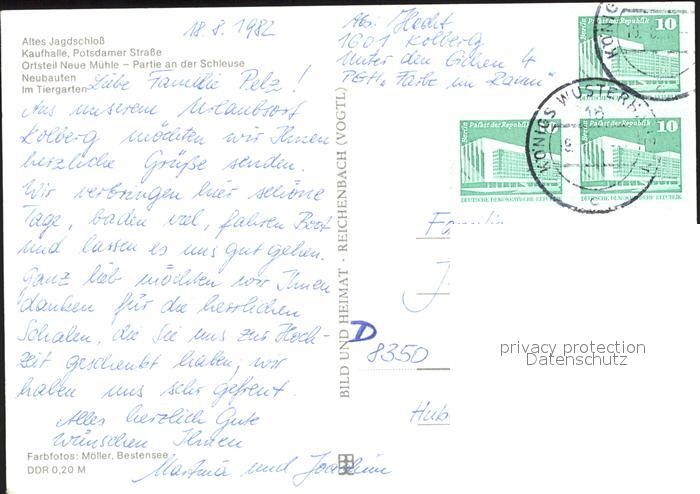 18.8.1982
Altes Jagdschloß
Kaufhalle, Potsdamer Straße
Ortsteil Neue Mühle – Partie an der Schleuse
Neubauten
Im Tiergarten
Liebe Familie Pelz!
Aus unserem Urlaubsort
Kolberg möchten wir Ihnen
herzliche Grüße senden.
Wir verbringen hier schöne
Tage, baden viel, fahren Boot
und lassen es uns gut gehen.
Ganz lieb möchten wir Ihnen
danken für die herrlichen
Schalen, die Sie uns zur Hoch-
zeit geschenkt haben, wir
haben uns sehr gefreut.
Alles herzlich Gute
wünschen Ihnen
Martina und Joachim
Farbfotos: Möller, Bestensee
DDR 0,20 M
BILD UND HEIMAT · REICHENBACH (VOGTL)
Abs: Hecht
1601 Kolberg
Unter den Eichen 4
PGH „Farbe im Raum"
Berlin Palast der Republik 10
Berlin Palast der Republik
Berlin Palast der Republik 10
DEUTSCHE DEMOKRATISCHE REPUBLIK
DEUTSCHE DEMOKRATISCHE REPUBLIK
KÖNIGS WUSTERH
18
c
D
8350
Hub
privacy protection
Datenschutz